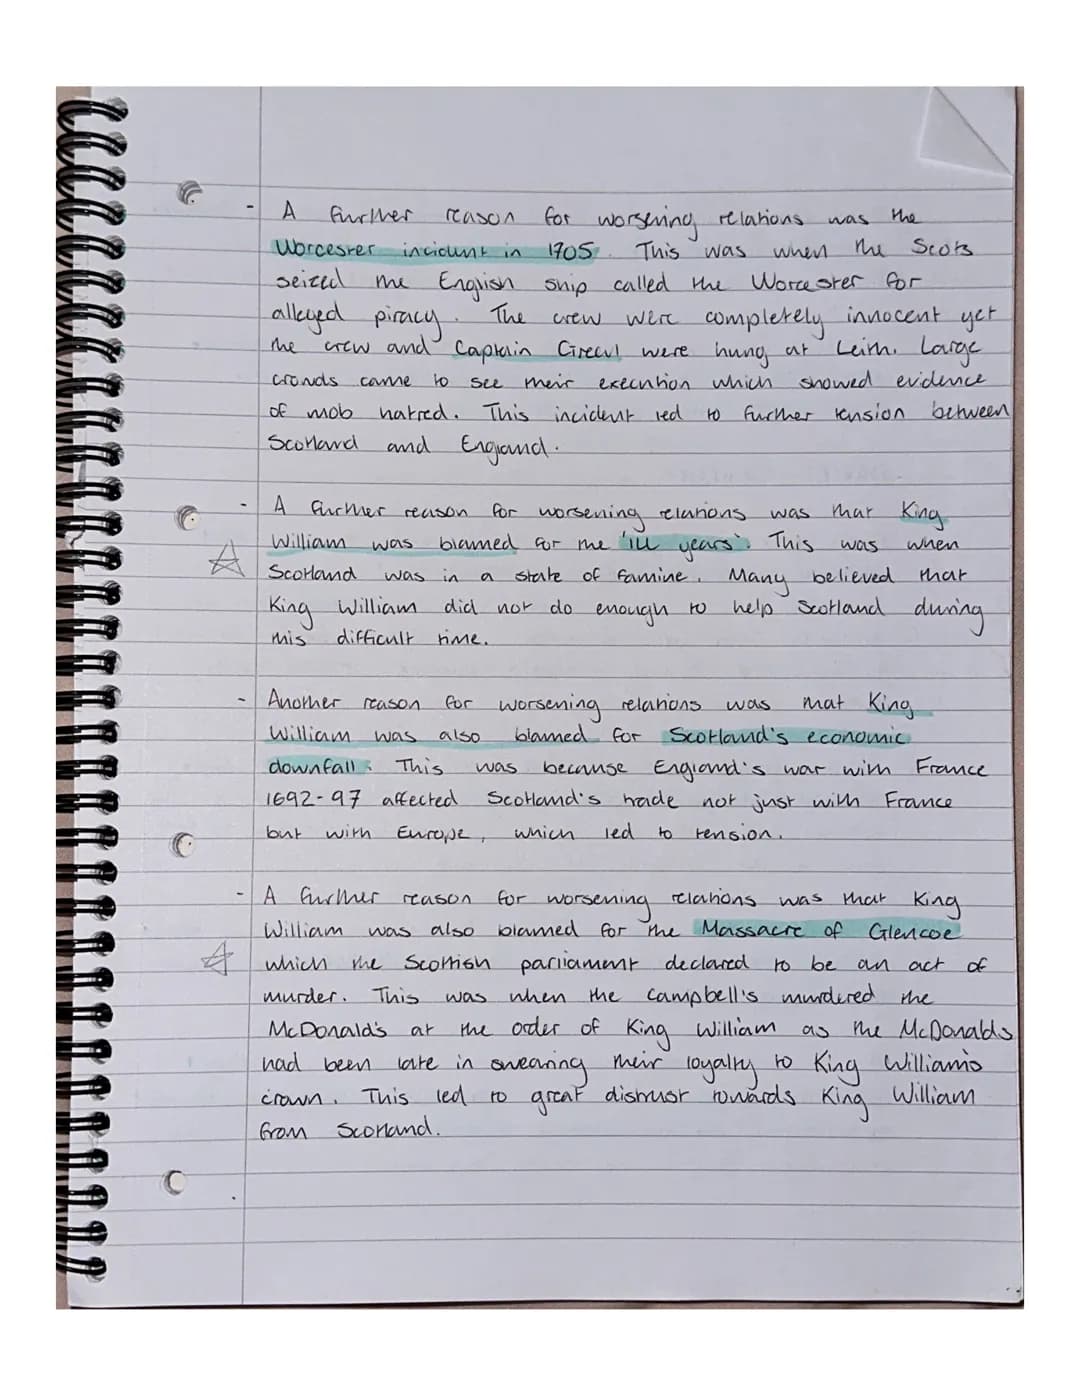 - A further reason for worsening relations was the
Worcester incident in 1705. This was when the Scots
seized the English ship called the Worcester for
alleged piracy. The crew were completely innocent yet
the crew and Captain Green were hung at Leith. Large
crowds came to see their execution which showed evidence
of mob hatred. This incident led to further tension between
Scotland and England.
- A further reason for worsening relations was that King
William was blamed for the 'ill years'. This was when
Scotland was in a state of famine. Many believed that
King William did not do enough to help Scotland during
this difficult time.
- Another reason for worsening relations was that King
William was also blamed for Scotland's economic
downfall. This was because England's war with France
1692-97 affected Scotland's trade not just with France
but with Europe, which led to tension.
- A further reason for worsening relations was that King
William was also blamed for the Massacre of Glencoe
which the Scottish parliament declared to be an act of
murder. This was when the Campbell's murdered the
McDonald's at the order of King William as the McDonalds
had been late in swearing their loyalty to King William's
crown. This led to great distrust towards King William
from Scotland.